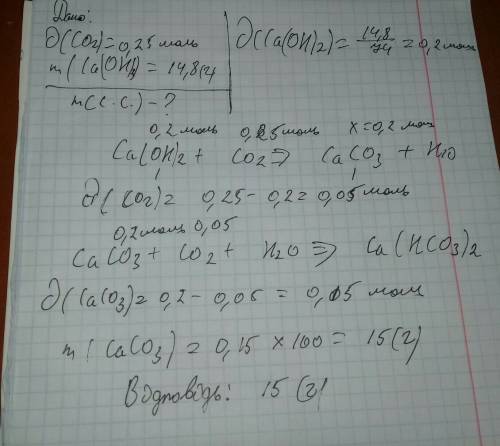 Дано:
∂(CO2)=0,25 моль
∂(Ca(OH)2)= 14,8/74 = 0,2 моль
m(Ca(OH)2) = 14,8(г)
m( с.) - ?
0,2 моль 0,25 моль x=0,2 моль
Ca(OH)2 + CO2 ⇒ CaCO3 + H2O
1 1
∂(CO2)= 0,25-0,2=0,05 моль
0,2 моль 0,05
CaCO3 + CO2 + H2O ⇒ Ca(HCO3)2
∂(CaCO3)= 0,2 - 0,05 = 0,15 моль
m(CaCO3) = 0,15 x 100 = 15(г)
Водповідь: 15 (г)